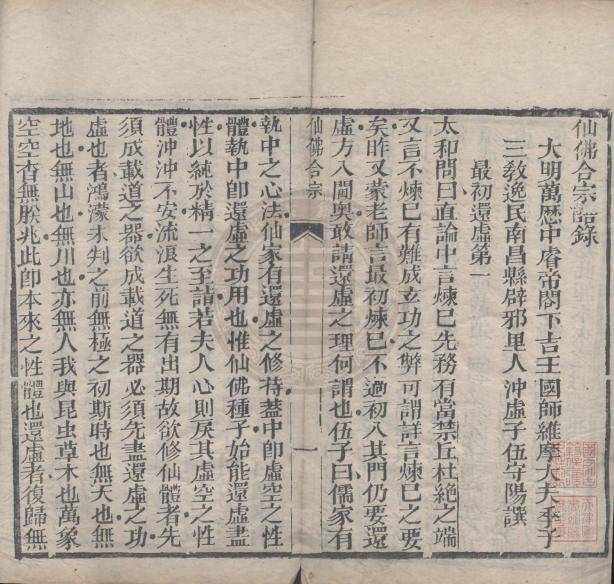 仙佛合宗語錄
大明萬歷中睿帝閣下吉王國師維摩大夫季子
三敎逸民南昌縣辟邪里人沖虛子伍守陽譔
最初還虛第一
太和問曰直論中言煉已先務有當禁止杜絶之端
又言不煉已有難成立功之獘可謂詳言煉已之要
矣昨又蒙老師言最初煉已不過初入其門仍要還
虛方入閫奥敢請還虛之理何謂也伍子曰儒家有
仙佛合宗
一
執中之心法仙家有還虛之修持葢中卽虛空之性
體執中卽還虛之功用也惟仙佛種子始能還虛盡
性以純於精一之至詣若夫人心則戾其虛空之性
體沖沖不安流浪生死無有出期故欲修仙體者先
須成載道之器欲成載道之器必須先盡還虛之功
虛也者鴻濛未判之前無極之初斯時也無天也無
地也無山也無川也亦無人我與昆虫草木也萬象
空空杳無朕兆此卽本來之性體也還虛者復歸無